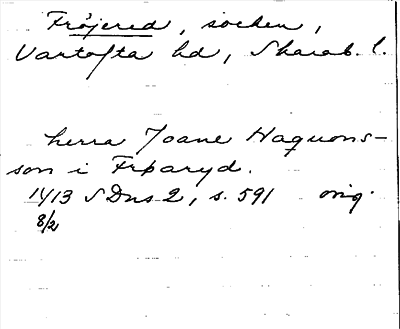 Fröjered, socken,
Vartofta hd, Skarab. l.
herra Joane Haquons-
son i Frþaryd.
1413 SDns 2, s. 591 orig.
8/2